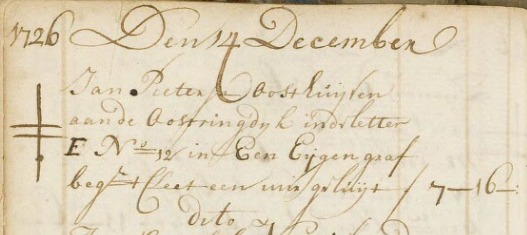 1726 Den 14 December
Jan Pieter Oosthuijsen
aande Oostringdyk in de letter
E No 12 in Een Eijgen graf
begr t Cleet een uur geluijt f 7-16-
dito